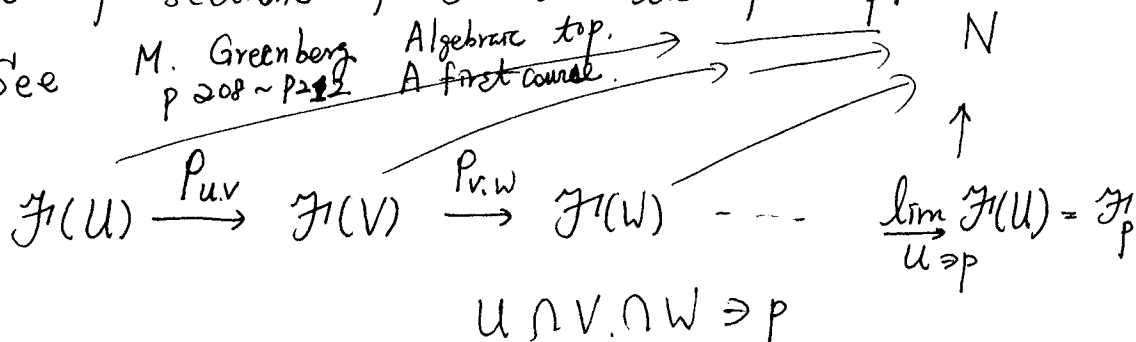 See M. Greenberg Algebraic top.
p 208 ~ p212 A first course.
N
↑
ℱ(U) —ρ_{U.V}→ ℱ(V) —ρ_{V.W}→ ℱ(W) - - - - lim→_{U∋p} ℱ(U) = ℱ_p
U ∩ V. ∩ W ∋ p